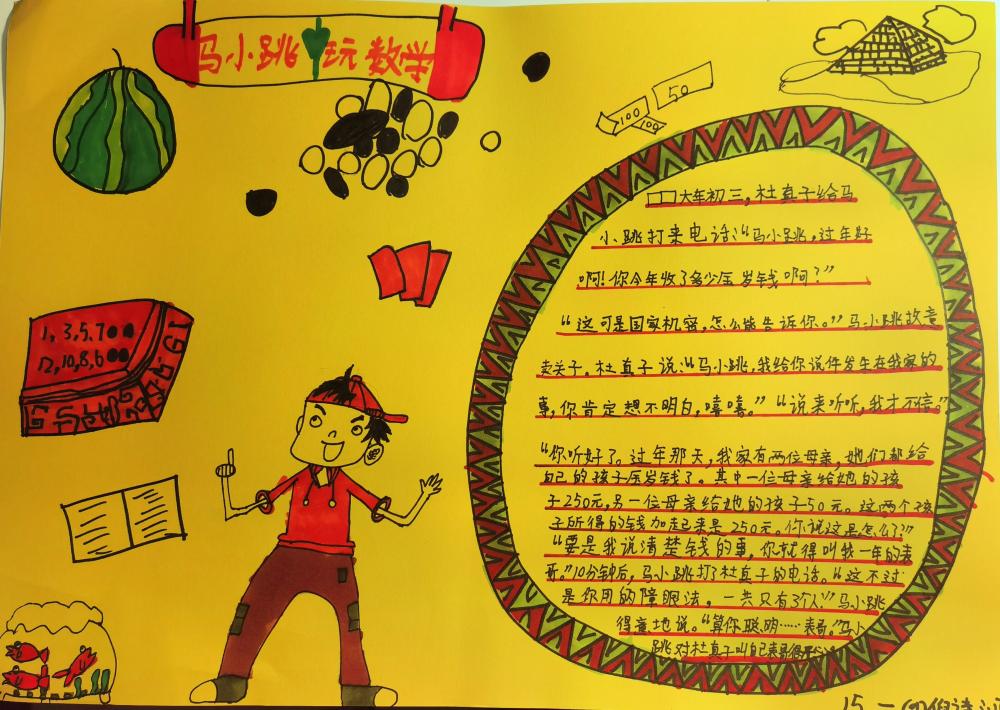 马小跳玩数学
50
100
100
大年初三，杜真子给马
小跳打来电话：“马小跳，过年好
啊！你今年收了多少压岁钱啊？”
“这可是国家机密，怎么能告诉你。”马小跳故意
卖关子。杜真子说：“马小跳，我给你说件发生在我家的
事，你肯定想不明白，嘻嘻。”“说来听听，我才不信。”
“你听好了。过年那天，我家有两位母亲，她们都给
自己的孩子压岁钱了。其中一位母亲给她的孩
子250元，另一位母亲给她的孩子50元。这两个孩
子所得的钱加起来是250元。你说这是怎么了？”
“要是我说清楚钱的事，你就得叫我一年的表
哥。”10分钟后，马小跳打了杜真子的电话。“这不过
是你用的障眼法，一共只有3个人！”马小跳
得意地说。“算你聪明……表哥。”马小
跳对杜真子叫自己表哥得
1，3，5，7
12，10，8，6
15